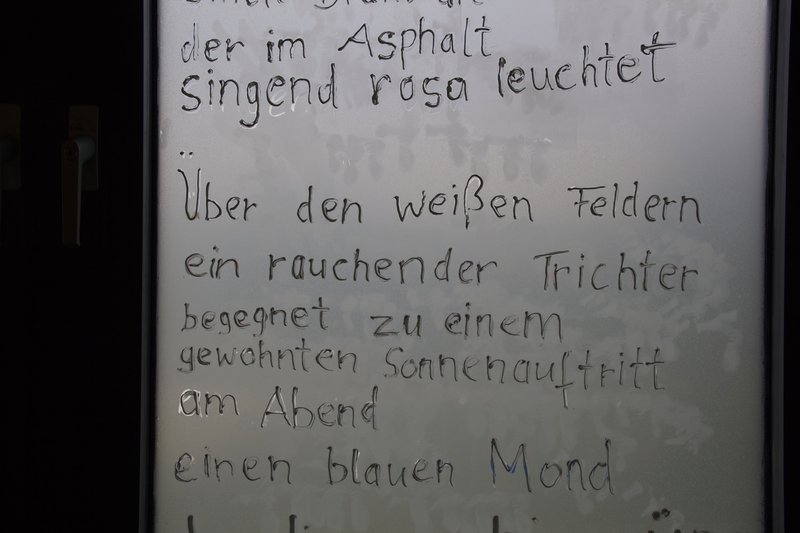 der im Asphalt
singend rosa leuchtet
Über den weißen Feldern
ein rauchender Trichter
begegnet zu einem
gewohnten Sonnenauftritt
am Abend
einen blauen Mond